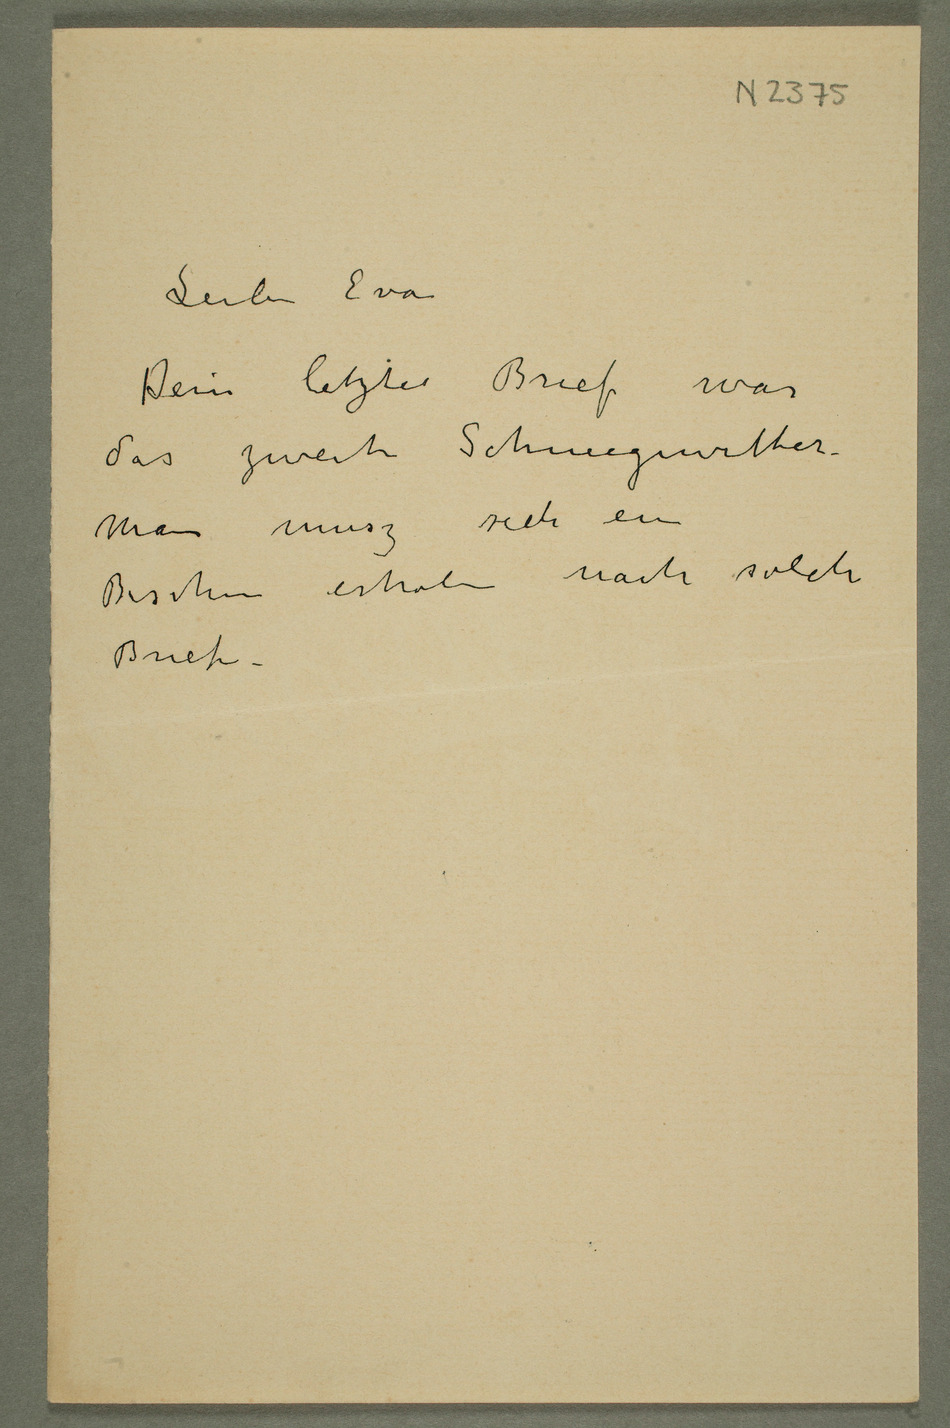 N 2375
Leibe Eva
Dein letztes Brief war
das zweite Schneegewitter–
Man musz sich ein
Bischen erholen nach solche
Briefe –